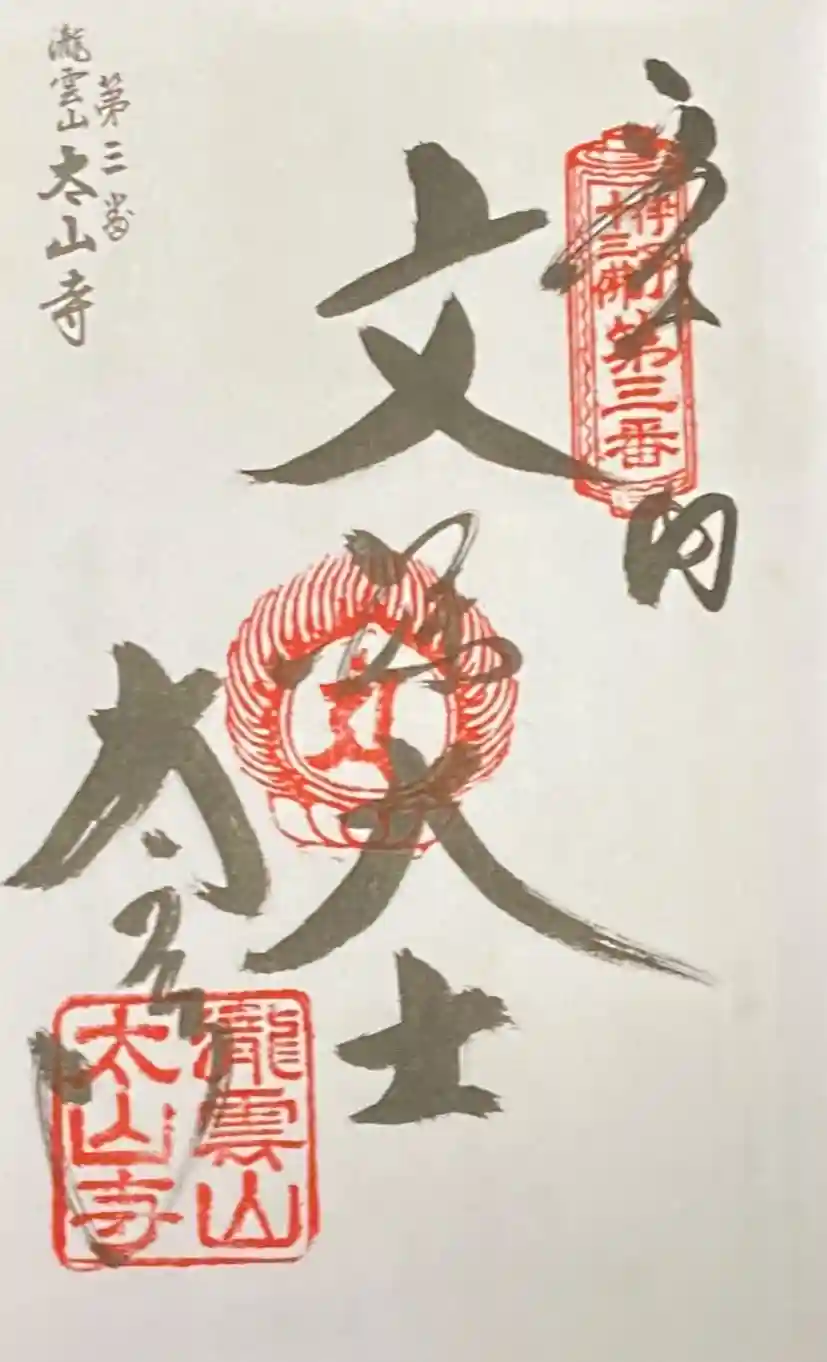 伊予
十三佛
第三番
文殊大士
太山寺
瀧雲山
太山寺
第三番
瀧雲山 太山寺